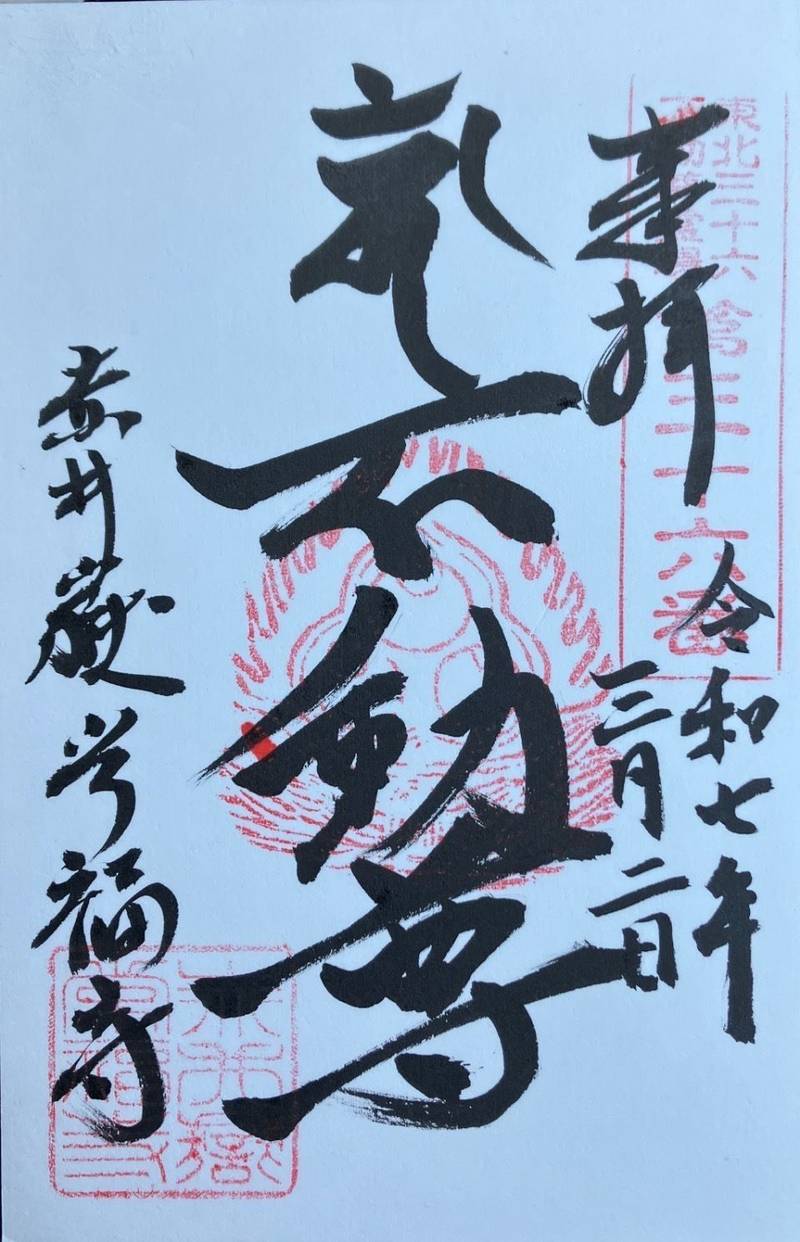 東北三十六
不動尊霊場
第三十六番
奉拝
令和七年
三月二日
不動尊
赤井嶽常福寺
赤井嶽
常福寺